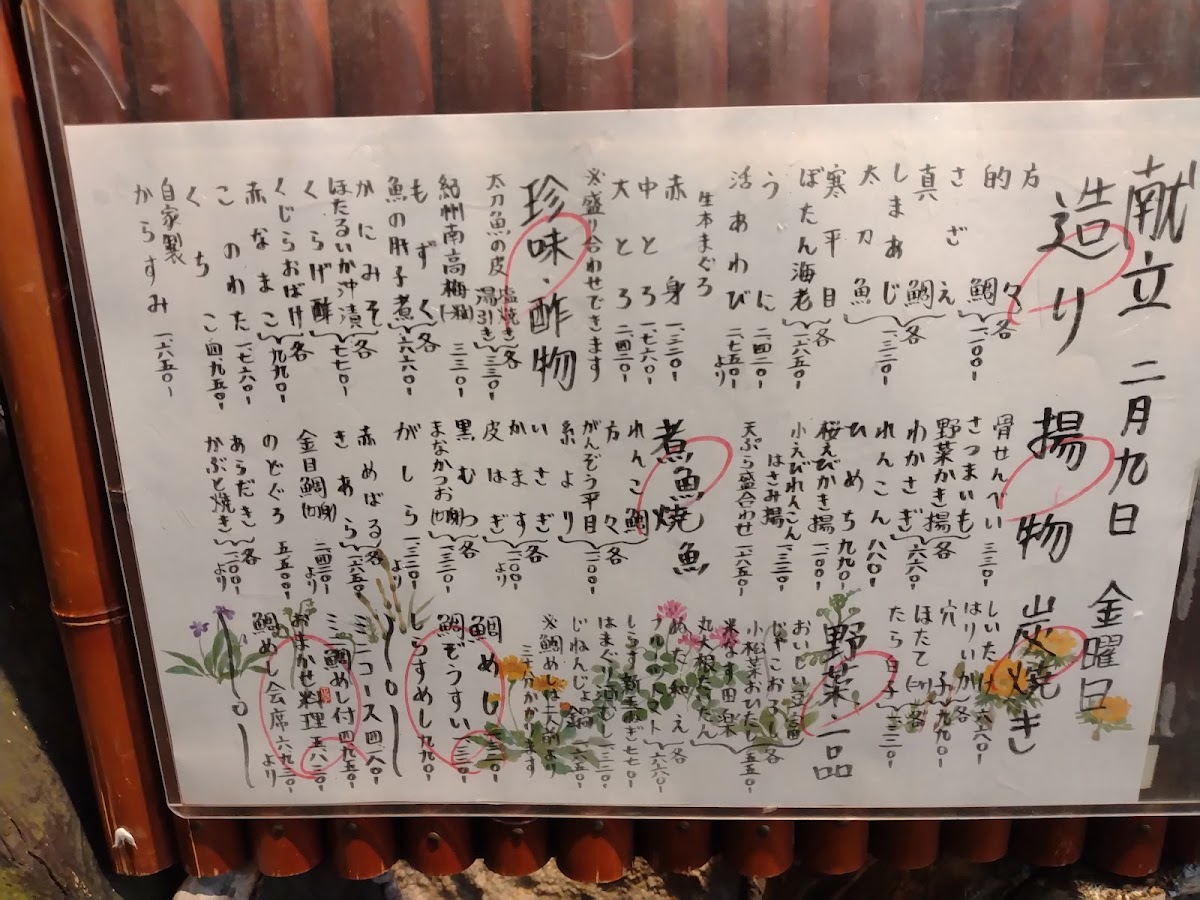 献立 二月九日 金曜日
造り
方々
的鯛 各一、一〇〇-
さざえ
真鯛
しまあじ
太刀魚 各一、三二〇-
寒平目
ぼたん海老 各一、六五〇-
うに 二、四二〇-
活あわび 二、七五〇-より
生本まぐろ
赤身 一、三二〇-
中とろ 一、七六〇-
大とろ 二、四二〇-
※盛り合わせできます
珍味・酢物
太刀魚の皮 塩焼き 湯引き 各三三〇-
紀州南高梅(一粒) 三三〇-
もずく
魚の肝子煮 各六六〇-
かにみそ
ほたるいか沖漬
くらげ酢 各七七〇-
くじらおばけ
赤なまこ 各九九〇-
このわた 一、七六〇-
くちこ 四、九五〇-
自家製
からすみ 一、六五〇-
揚物
骨せんべい 三三〇-
さつまいも
野菜かき揚
わかさぎ 各六六〇-
れんこん 八八〇-
ひめち 九九〇-
桜えびかき揚 一、一〇〇-
小えびれんこん
はさみ揚 一、三二〇-
天ぷら盛合わせ 一、六五〇-
煮魚 焼魚
れんこ鯛
方々
がんぞう平目
糸より 各一、一〇〇-
いさぎ
かます
皮はぎ 各一、二〇〇-より
黒むつ
まなかつお(切身) 各一、三二〇-
がしら 一、三二〇-より
赤めばる
きあら 各一、六五〇-
金目鯛(切身) 二、四二〇-より
のどぐろ 五、五〇〇-
あらだき
かぶと焼き 各一、一〇〇-より
炭焼き
しいたけ 六六〇-
はりいか
穴子 各九九〇-
ほたて(一ケ)
たら白子 各一、三二〇-
野菜・一品
おいしい豆富
じゃこおろし
小松菜おひたし 各五五〇-
米なす田楽
丸大根たいたん
ぬた和え
フルーツトマト 各六六〇-
しらすと新玉ねぎ 七七〇-
はまぐり酒むし 一、三二〇-
じねんじょ鍋 一、六五〇-
※鯛めしは二人前より
三十分かかります
鯛めし 一、三二〇-
鯛ぞうすい 一、一三〇-
しらすめし 九九〇-
ミニコース 四、一八〇-
ミニ鯛めし付 四、九五〇-
おまかせ料理 五、八三〇-
鯛めし会席 六、九三〇-より